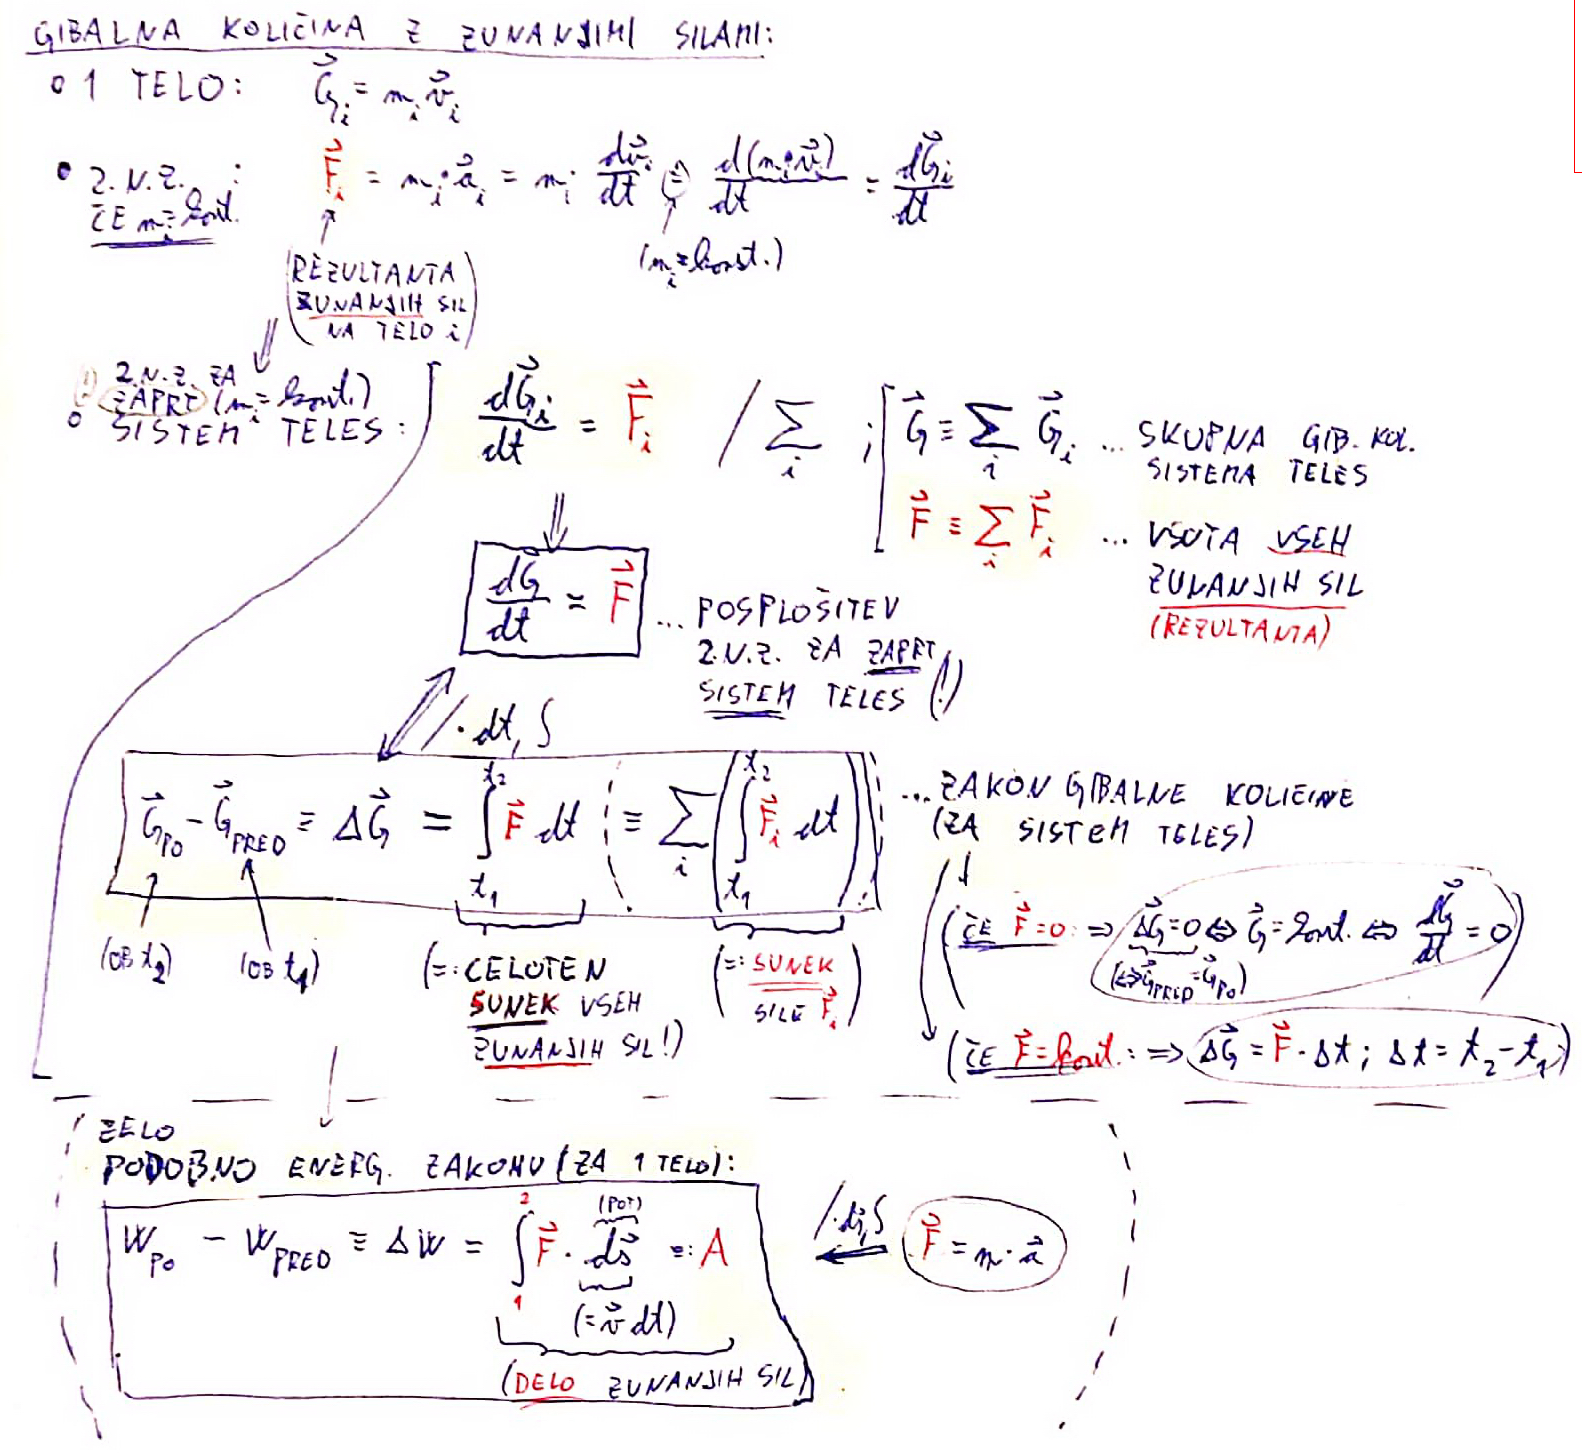 GIBALNA KOLIČINA Z ZUNANJIMI SILAMI:
• 1 TELO: G⃗_i = m_i v⃗_i
• 2.N.Z. : F⃗_i = m_i·a⃗_i = m_i · dv⃗_i/dt (=) d(m_i·v⃗_i)/dt = dG⃗_i/dt
ČE m_i=konst.
(m_i=konst.)
(REZULTANTA
ZUNANJIH SIL
NA TELO i)
(!) 2.N.Z. ZA
ZAPRT (m_i=konst.)
• SISTEM TELES:
dG⃗_i/dt = F⃗_i / Σ_i ; G⃗ ≡ Σ_i G⃗_i ... SKUPNA GIB. KOL.
SISTEMA TELES
F⃗ ≡ Σ_i F⃗_i ... VSOTA VSEH
ZUNANJIH SIL
(REZULTANTA)
⇓
dG⃗/dt = F⃗ ... POSPLOŠITEV
2.N.Z. ZA ZAPRT
SISTEM TELES (!)
/·dt, ∫
G⃗_PO − G⃗_PRED ≡ ΔG⃗ = ∫_{t_1}^{t_2} F⃗ dt (≡ Σ_i (∫_{t_1}^{t_2} F⃗_i dt)) ... ZAKON GIBALNE KOLIČINE
(ZA SISTEM TELES)
(OB t_2) (OB t_1)
(=: CELOTEN
SUNEK VSEH
ZUNANJIH SIL!)
(=: SUNEK
SILE F⃗_i)
(ČE F⃗=0: ⇒ ΔG⃗=0 ⇔ G⃗=konst. ⇔ dG⃗/dt = 0)
(⇔ G⃗_PRED = G⃗_PO)
(ČE F⃗=konst.: ⇒ ΔG⃗ = F⃗·Δt ; Δt = t_2−t_1)
ZELO
PODOBNO ENERG. ZAKONU (ZA 1 TELO):
W_PO − W_PRED ≡ ΔW = ∫_1^2 F⃗ · ds⃗ =: A
(POT)
(= v⃗ dt)
(DELO ZUNANJIH SIL)
/·ds⃗, ∫ F⃗ = m·a⃗